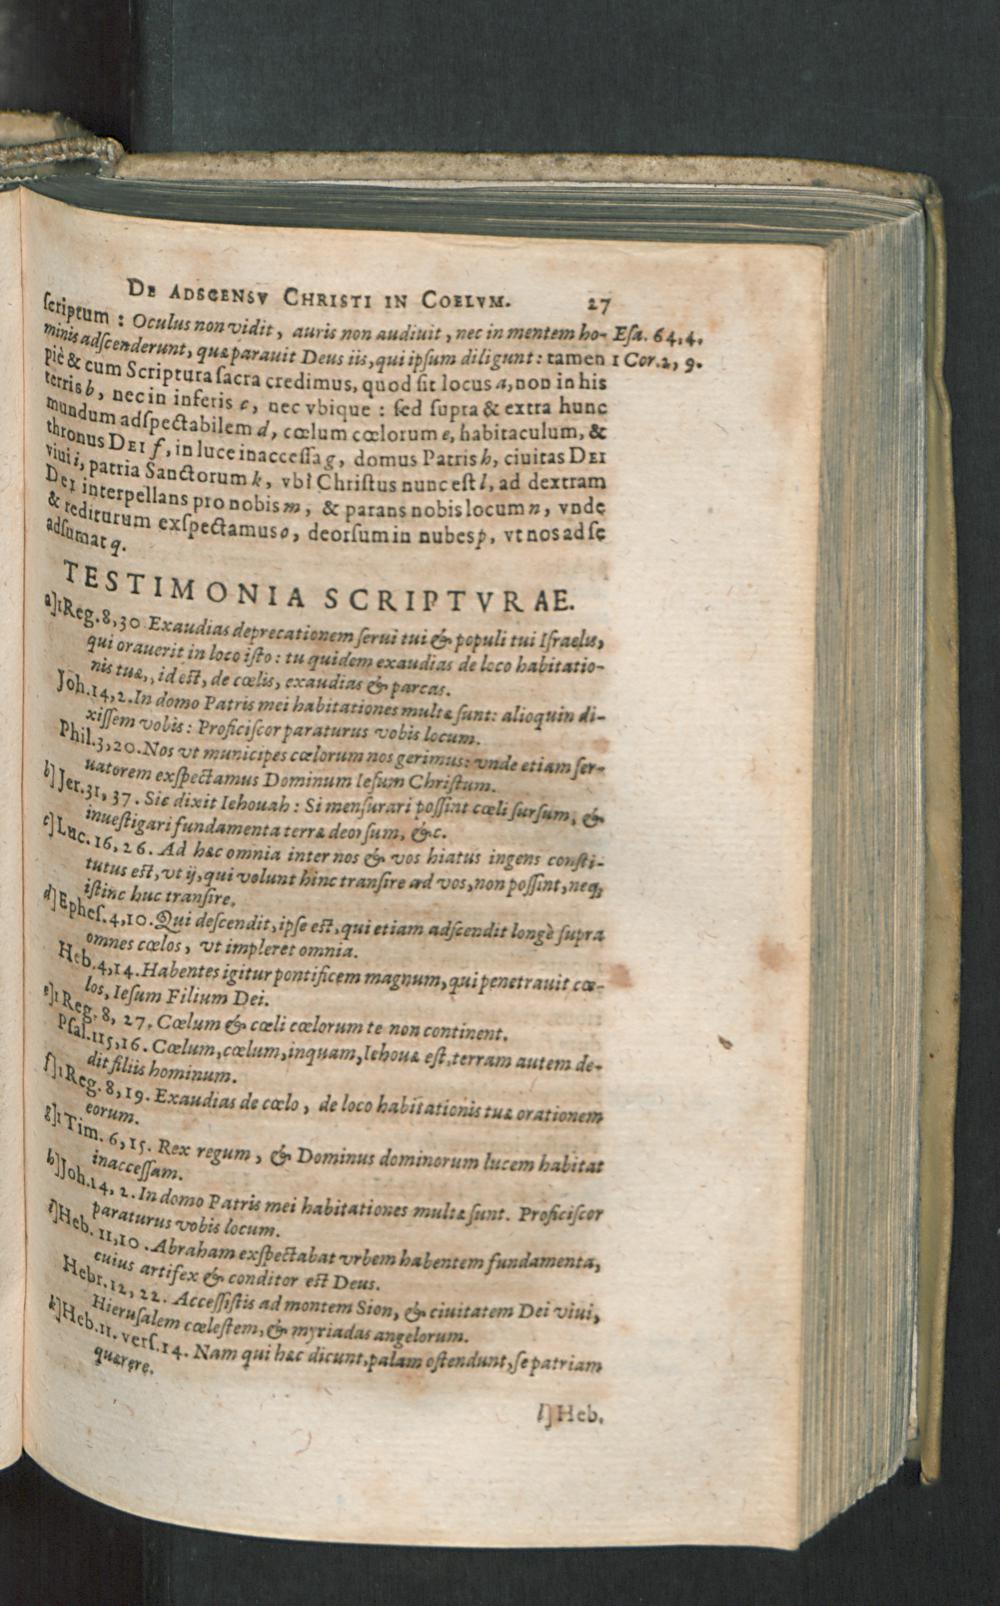 De Adscensv Christi in Coelvm. 27
ſcriptum : Oculus non vidit, auris non audiuit, nec in mentem ho- Eſa. 64,4.
minis adſcenderunt, quæ parauit Deus iis, qui ipſum diligunt: tamen 1 Cor.2, 9.
piè & cum Scriptura ſacra credimus, quod ſit locus a, non in his
terris b, nec in inferis c, nec vbique : ſed ſupra & extra hunc
mundum adſpectabilem d, cœlum cœlorum e, habitaculum, &
thronus DEI f, in luce inacceſſa g, domus Patris h, ciuitas DEI
viui i, patria Sanctorum k, vbi Chriſtus nunc eſt l, ad dextram
DEI interpellans pro nobis m, & parans nobis locum n, vnde
& rediturum exſpectamus o, deorſum in nubes p, vt nos ad ſe
adſumat q.
TESTIMONIA SCRIPTVRAE.
a] 1 Reg. 8, 30 Exaudias deprecationem ſerui tui & populi tui Iſraelis,
qui orauerit in loco iſto : tu quidem exaudias de loco habitatio-
nis tuæ,, id eſt, de cœlis, exaudias & parcas.
Joh. 14, 2. In domo Patris mei habitationes multæ ſunt: alioquin di-
xiſſem vobis : Proficiſcor paraturus vobis locum.
Phil. 3, 20. Nos vt municipes cœlorum nos gerimus: vnde etiam ſer-
uatorem exſpectamus Dominum Ieſum Chriſtum.
b] Jer. 31, 37. Sic dixit Iehouah : Si menſurari poſſint cœli ſurſum, &
inueſtigari fundamenta terræ deorſum, &c.
c] Luc. 16, 26. Ad hæc omnia inter nos & vos hiatus ingens conſti-
tutus eſt, vt ij, qui volunt hinc tranſire ad vos, non poſſint, neq;
iſtinc huc tranſire.
d] Epheſ. 4, 10. Qui deſcendit, ipſe eſt, qui etiam adſcendit longè ſupra
omnes cœlos, vt impleret omnia.
Heb. 4, 14. Habentes igitur pontificem magnum, qui penetrauit cœ-
los, Ieſum Filium Dei.
e] 1 Reg. 8, 27. Cœlum & cœli cœlorum te non continent.
Pſal. 115, 16. Cœlum, cœlum, inquam, Iehouæ eſt, terram autem de-
dit filiis hominum.
f] 1 Reg. 8, 19. Exaudias de cœlo, de loco habitationis tuæ orationem
eorum.
g] 1 Tim. 6, 15. Rex regum, & Dominus dominorum lucem habitat
inacceſſam.
h] Joh. 14, 2. In domo Patris mei habitationes multæ ſunt. Proficiſcor
paraturus vobis locum.
i] Heb. 11, 10. Abraham exſpectabat vrbem habentem fundamenta,
cuius artifex & conditor eſt Deus.
Hebr. 12, 22. Acceſſiſtis ad montem Sion, & ciuitatem Dei viui,
Hieruſalem cœleſtem, & myriadas angelorum.
k] Heb. 11. verſ. 14. Nam qui hæc dicunt, palam oſtendunt, ſe patriam
quærere.
l] Heb.